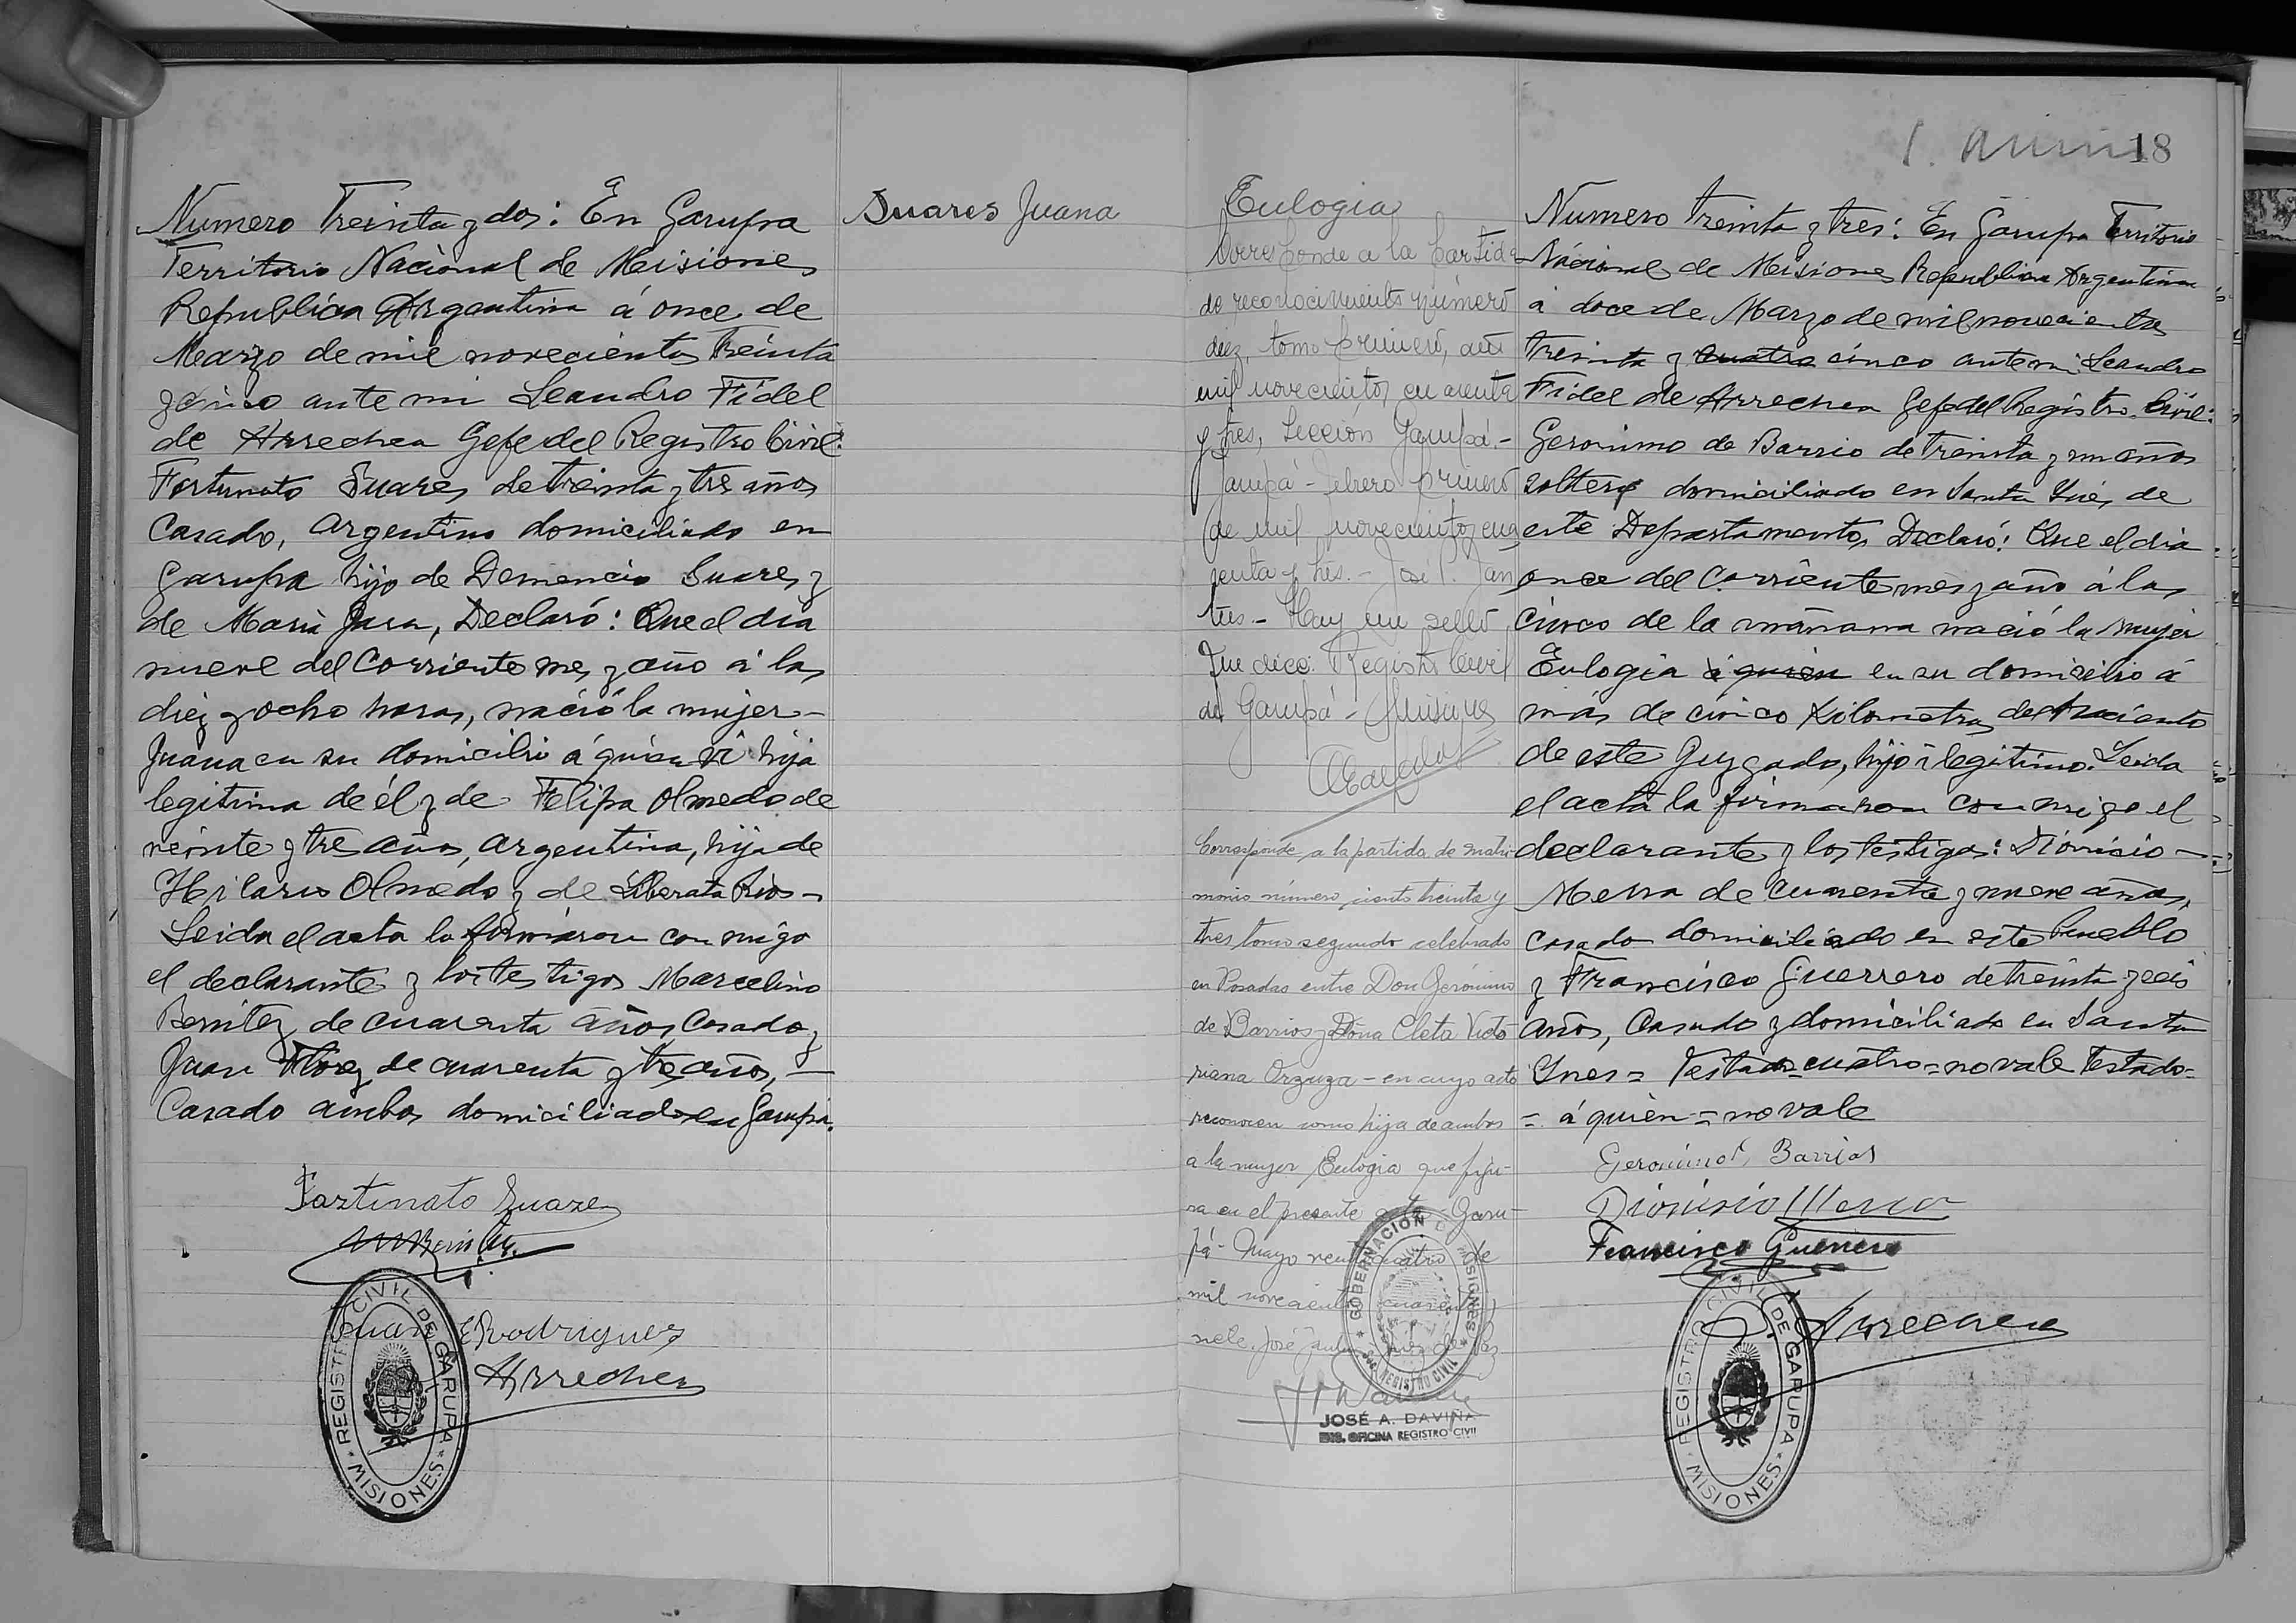 Numero Treinta y dos: En Garupa
Territorio Nacional de Misiones
Republica Argentina á once de
Marzo de mil novecientos treinta
y cinco ante mi Leandro Fidel
de Arrechea Gefe del Registro Civil:
Fortunato Suares de treinta y tres años
Casado, argentino domiciliado en
Garupa hijo de Demencio Suares y
de Maria Jara, Declaró: Que el dia
nueve del Corriente mes y año á las
diez y ocho horas, nació la mujer
Juana en su domicilio á quien vi hija
legitima de él y de Felipa Olmedo de
veinte y tres años, argentina, hija de
Hilario Olmedo y de Liberata Rios
Leida el acta la firmaron con migo
el declarante y los testigos Marcelino
Benitez de cuarenta años, Casado y
Juan de cuarenta y tres años,
Casado ambos domiciliados en Garupa.
Fortunato Suarez
Juan E Rodriguez
Arrechea
REGISTRO CIVIL DE GARUPA
MISIONES
Suares Juana
Eulogia
Corresponde a la partida
de reconocimiento número
diez, tomo primero, año
mil novecientos cuarenta
y tres, Sección Garupá.-
Garupá - Febrero primero
de mil novecientos cua
renta y tres. - José P. Jan
tus - Hay un sello
que dice: Registro Civil
de Garupá -
Corresponde a la partida de matri
monio número ciento treinta y
tres tomo segundo celebrado
en Posadas entre Don Gerónimo
de Barrios y Doña Cleta Victo
riana Orzuza - en cuyo acto
reconocen como hija de ambos
a la mujer Eulogia que figu-
ra en el presente acta - Garu-
pá - Mayo veinticuatro de
mil novecientos cuarenta y
siete. José Juez de Paz
GOBERNACION DE MISIONES
REGISTRO CIVIL
JOSÉ A. DAVIÑA
OFICINA REGISTRO CIVIL
18
Numero treinta y tres: En Garupa Territorio
Nacional de Misiones Republica Argentina
á doce de Marzo de mil novecientos
treinta y cuatro cinco ante mi Leandro
Fidel de Arrechea Gefe del Registro Civil:
Geronimo de Barrio de treinta y un años
soltero domiciliado en Santa Ynés, de
este Departamento, Declaró: Que el dia
once del Corriente mes y año á las
cinco de la mañana nació la mujer
Eulogia á quien en su domicilio á
más de cinco Kilometros del asiento
de este Juzgado, hijo ilegitimo. Leida
el acta la firmaron con migo el
declarante y los testigos: Dionisio
Merra de cuarenta y nueve años,
casado domiciliado en este Pueblo
y Francisco Guerrero de treinta y seis
años, Casado y domiciliado en Santa
Ynes = Testado = cuatro = no vale Testado =
= á quien = no vale
Geronimo Barrios
Dionisio Merra
Francisco Guerrero
Arrechea
REGISTRO CIVIL DE GARUPA
MISIONES